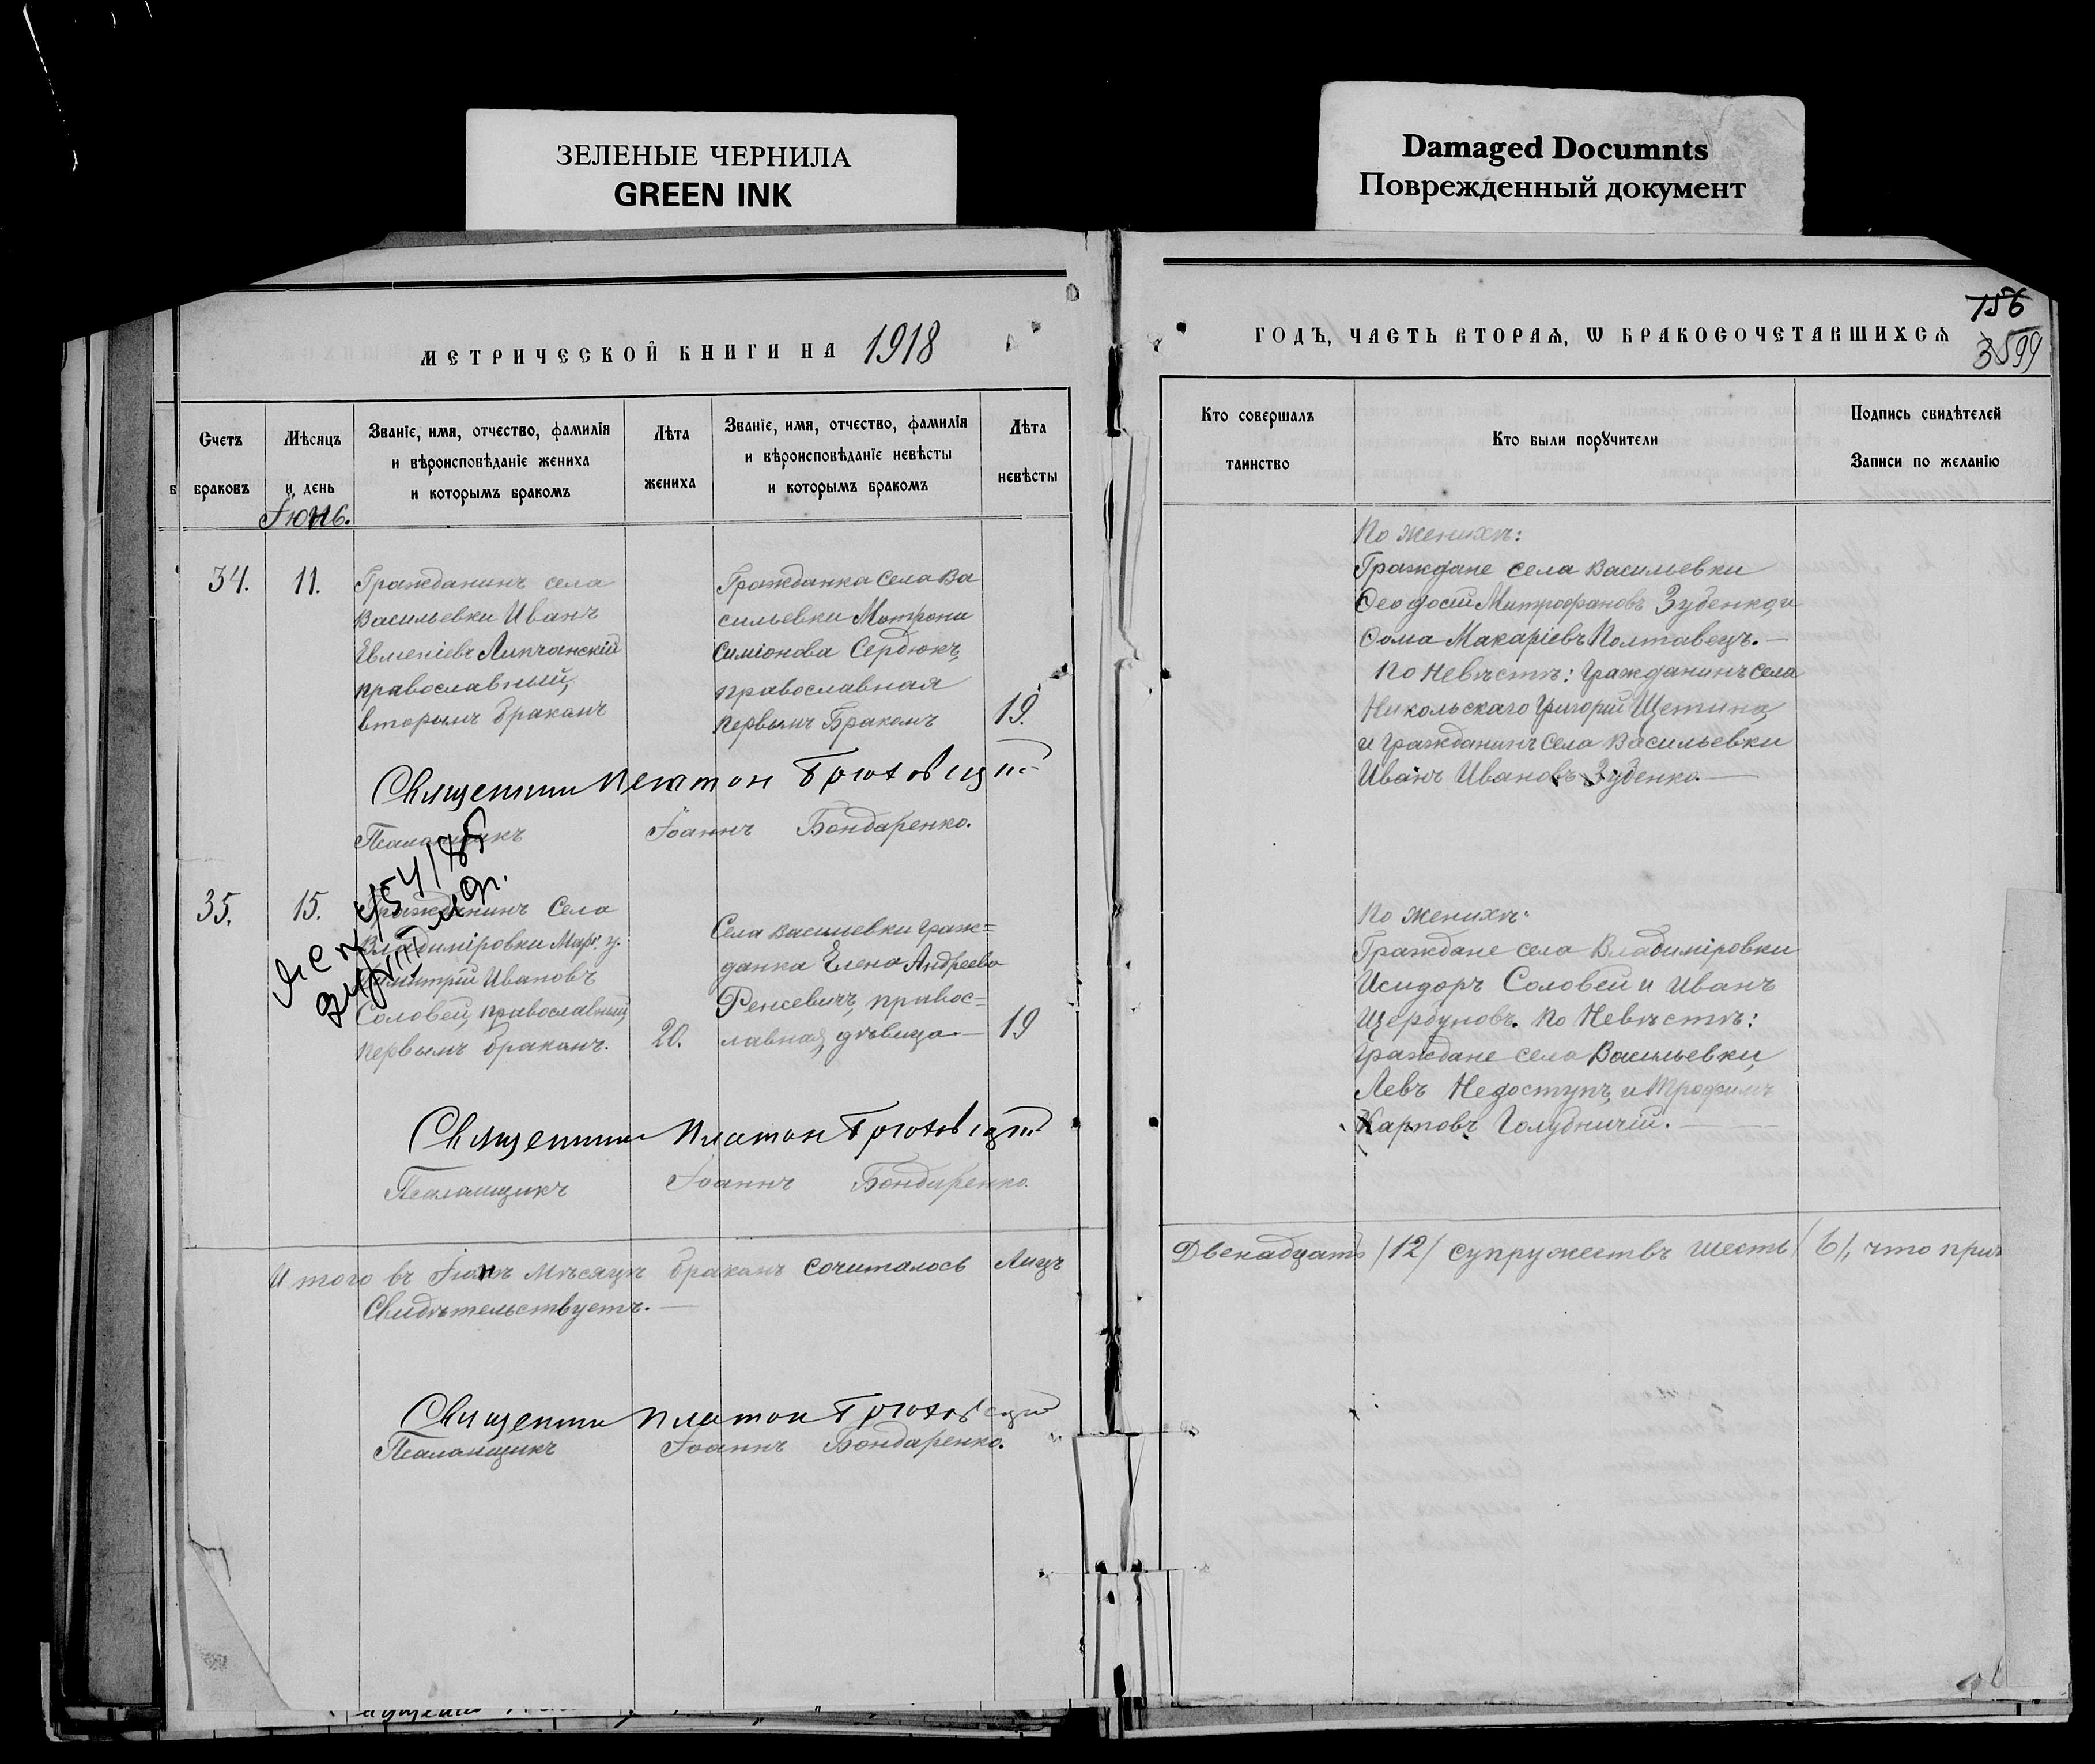 ЗЕЛЕНЫЕ ЧЕРНИЛА
GREEN INK
Damaged Documnts
Поврежденный документ
МЕТРИЧЕСКОЙ КНИГИ НА 1918
Счетъ браковъ
Мѣсяцъ и день
Званіе, имя, отчество, фамилія и вѣроисповѣданіе жениха и которымъ бракомъ
Лѣта жениха
Званіе, имя, отчество, фамилія и вѣроисповѣданіе невѣсты и которымъ бракомъ
Лѣта невѣсты
Іюнь.
34.
11.
Гражданинъ села
Васильевки Иванъ
Евменіевъ Липчанскій
православный,
вторымъ бракомъ
Гражданка села Ва
сильевки Матрона
Симіонова Сердюкъ,
православная
первымъ Бракомъ
19.
Священник Платон
Псаломщикъ Іоаннъ Бондаренко.
35.
15.
Гражданинъ Села
Владиміровки Мар. у.
Димитрій Ивановъ
Соловей, православный,
первымъ бракомъ.
20.
Села Васильевки граж=
данка Елена Андреева
правос=
лавная, дѣвица.—
19
Священник Платон
Псаломщикъ Іоаннъ Бондаренко.
Итого въ Іюнѣ Мѣсяцѣ бракомъ сочиталось Лицъ
Свидѣтельствуетъ.—
Священник Платон
Псаломщикъ Іоаннъ Бондаренко.
156
3599
ГОДЪ, ЧАСТЬ ВТОРАЯ, Ѡ БРАКОСОЧЕТАВШИХСЯ
Кто совершалъ таинство
Кто были порꙋчители
Подпись свидѣтелей Записи по желанію
По женихѣ:
Граждане села Васильевки
Ѳеодосій Митрофановъ Зубенко, и
Ѳома Макаріевъ Полтавецъ.—
По Невѣстѣ: Гражданинъ села
Никольскаго Григорій Щетина,
и Гражданинъ села Васильевки
Иванъ Ивановъ Зубенко.—
По женихѣ:
Граждане села Владиміровки
Исидоръ Соловей и Иванъ
Щербуновъ. По Невѣстѣ:
Граждане села Васильевки,
Левъ Недоступъ, и Трофимъ
Карповъ Голубничій.—
Двенадцать /12/ супружествъ шесть /6/, что при